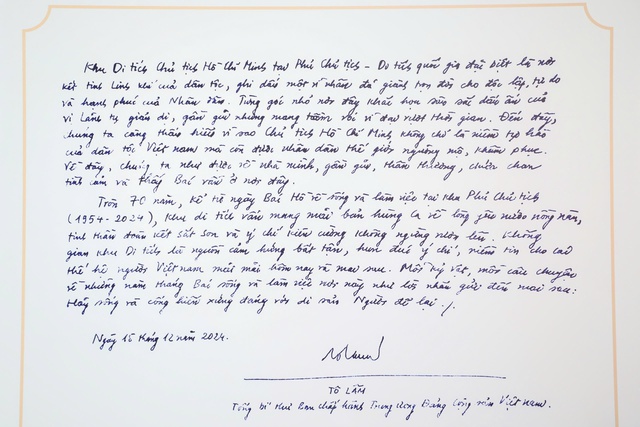 Khu Di tích Chủ tịch Hồ Chí Minh tại Phủ Chủ tịch - Di tích quốc gia đặc biệt là nơi
kết tinh linh khí của dân tộc, ghi dấu một vĩ nhân đã giành trọn đời cho độc lập, tự do
và hạnh phúc của Nhân dân. Từng góc nhỏ nơi đây khắc họa sâu sắc dấu ấn của
vị Lãnh tụ giản dị, gần gũi nhưng mang tầm vóc vĩ đại vượt thời gian. Đến đây,
chúng ta càng thấu hiểu vì sao Chủ tịch Hồ Chí Minh không chỉ là niềm tự hào
của dân tộc Việt Nam mà còn được nhân dân thế giới ngưỡng mộ, khâm phục.
Về đây, chúng ta như được về nhà mình, gần gũi, thân thương, chứa chan
tình cảm và thấy Bác vẫn ở nơi đây.
Tròn 70 năm, kể từ ngày Bác Hồ về sống và làm việc tại Khu Phủ Chủ tịch
(1954-2024), Khu di tích vẫn mang mãi bản hùng ca về lòng yêu nước nồng nàn,
tinh thần đoàn kết sắt son và ý chí kiên cường không ngừng vươn lên. Không
gian Khu Di tích là nguồn cảm hứng bất tận, hun đúc ý chí, niềm tin cho các
thế hệ người Việt Nam mãi mãi hôm nay và mai sau. Mỗi kỷ vật, mỗi câu chuyện
về những năm tháng Bác sống và làm việc nơi này như lời nhắn gửi đến mai sau:
Hãy sống và cống hiến xứng đáng với di sản Người để lại ./.
Ngày 15 tháng 12 năm 2024.
TÔ LÂM
Tổng Bí thư Ban Chấp hành Trung ương Đảng Cộng sản Việt Nam.